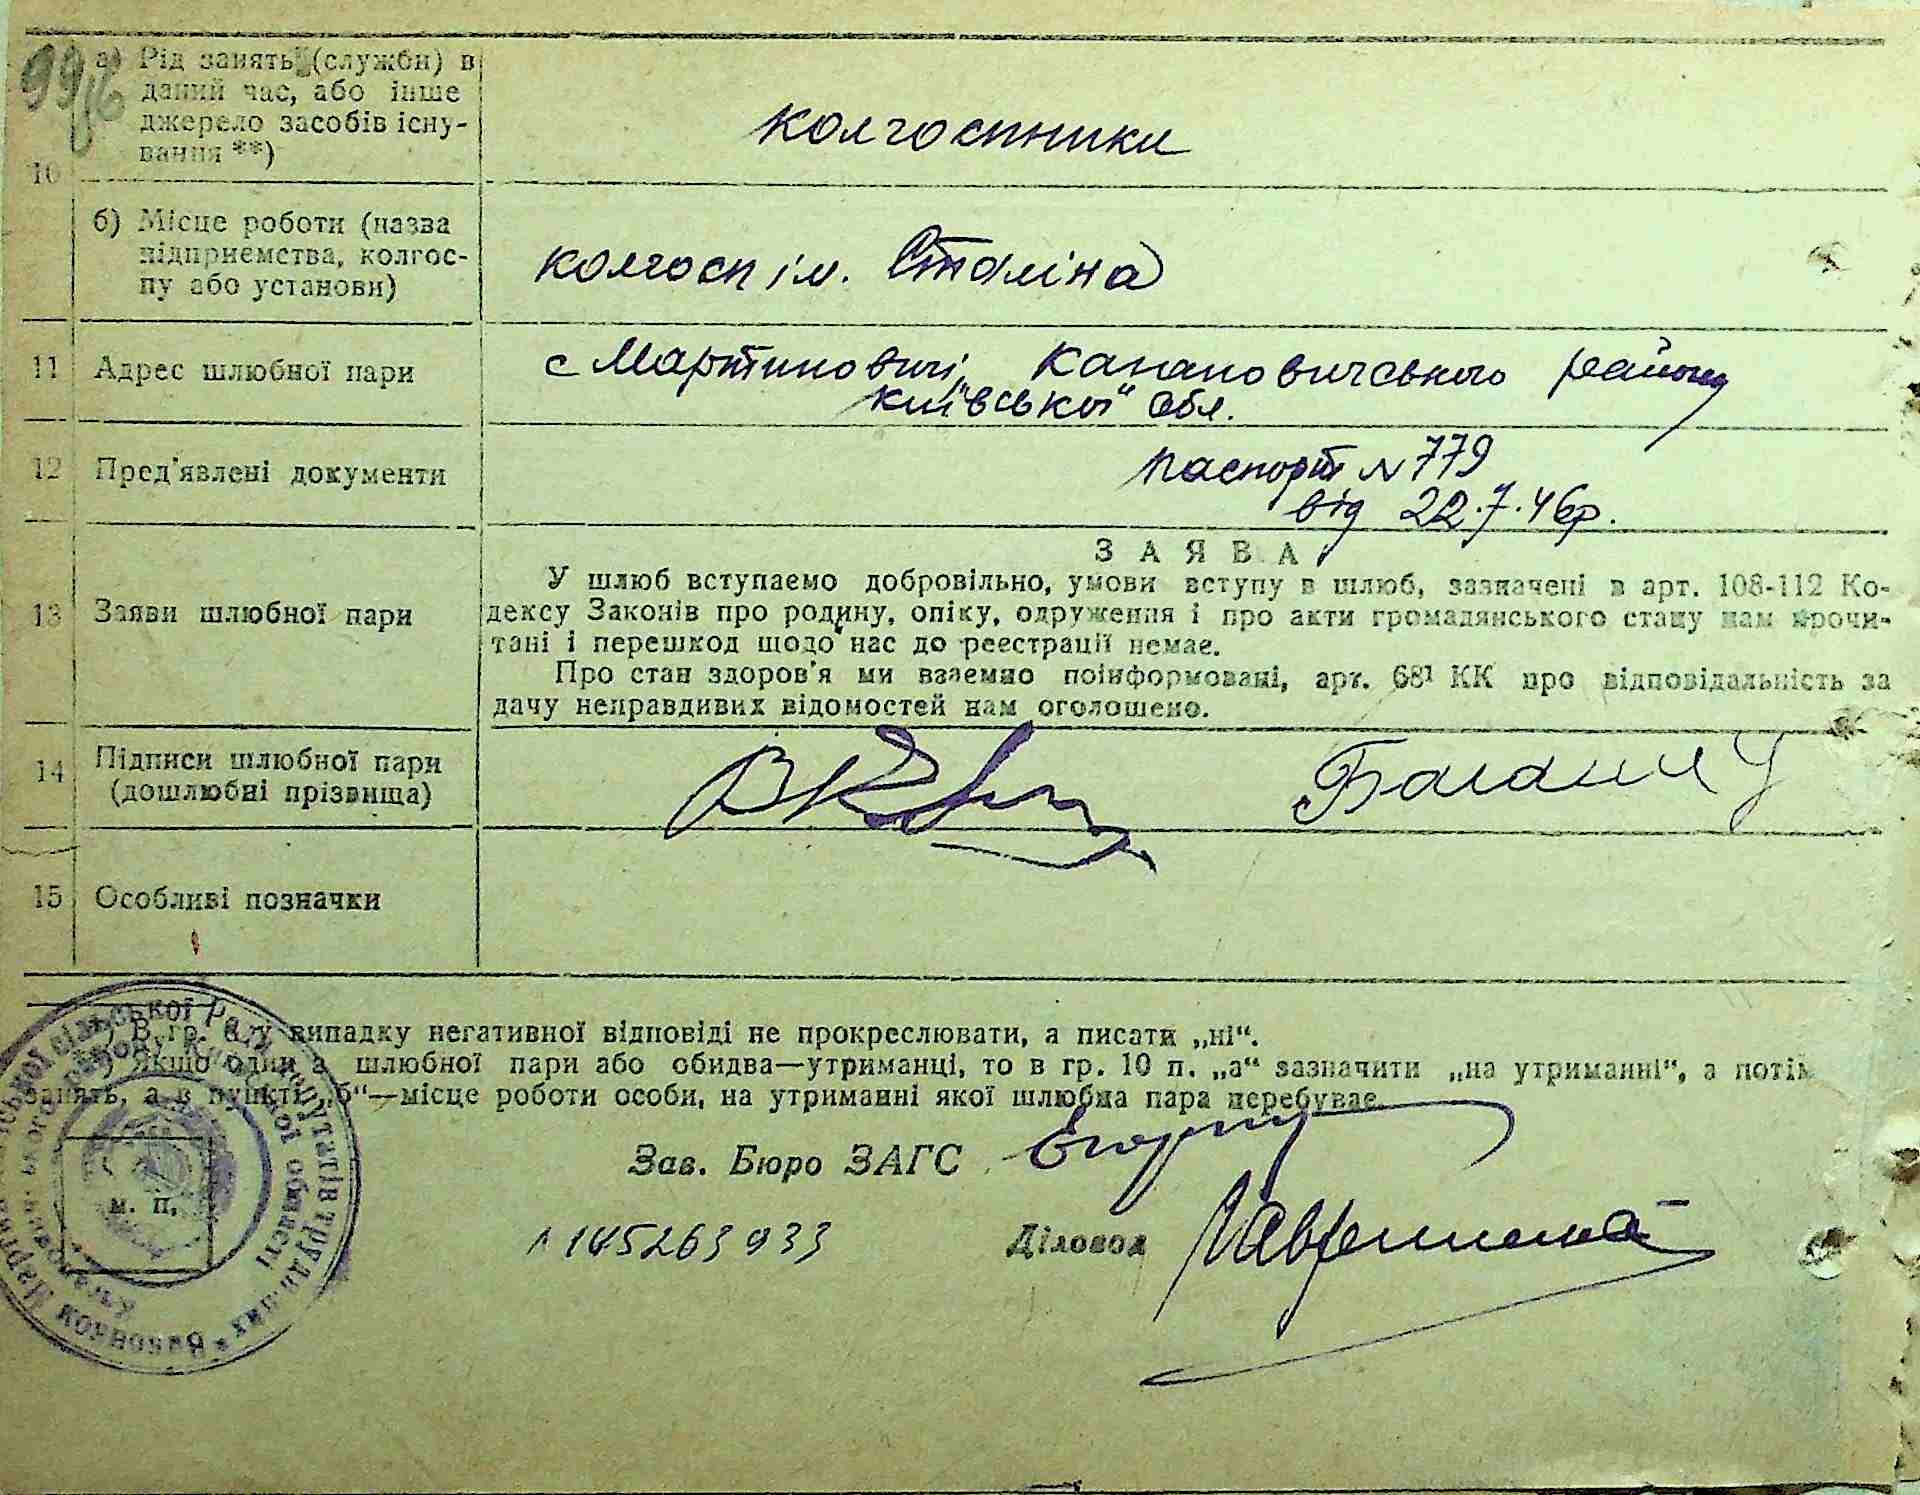 а) Рід занять (служби) в
даний час, або інше
джерело засобів існу-
вання **)
10
колгоспники
б) Місце роботи (назва
підприємства, колгос-
пу або установи)
колгосп ім. Сталіна
11 Адрес шлюбної пари
с Мартиновичі, Кагановичського району
Київської обл.
12 Пред'явлені документи
паспорт № 779
від 22.7.46р.
ЗАЯВА
13 Заяви шлюбної пари
У шлюб вступаємо добровільно, умови вступу в шлюб, зазначені в арт. 108-112 Ко-
дексу Законів про родину, опіку, одруження і про акти громадянського стану нам прочи-
тані і перешкод щодо нас до реєстрації немає.
Про стан здоров'я ми взаємно поінформовані, арт. 68¹ КК про відповідальність за
дачу неправдивих відомостей нам оголошено.
14 Підписи шлюбної пари
(дошлюбні прізвища)
15 Особливі позначки
В гр. у випадку негативної відповіді не прокреслювати, а писати „ні“.
Якщо один з шлюбної пари або обидва—утриманці, то в гр. 10 п. „а“ зазначити „на утриманні“, а потім
занять, а в пункті „б“—місце роботи особи, на утриманні якої шлюбна пара перебуває.
Зав. Бюро ЗАГС
м. п.
145263933
Діловод